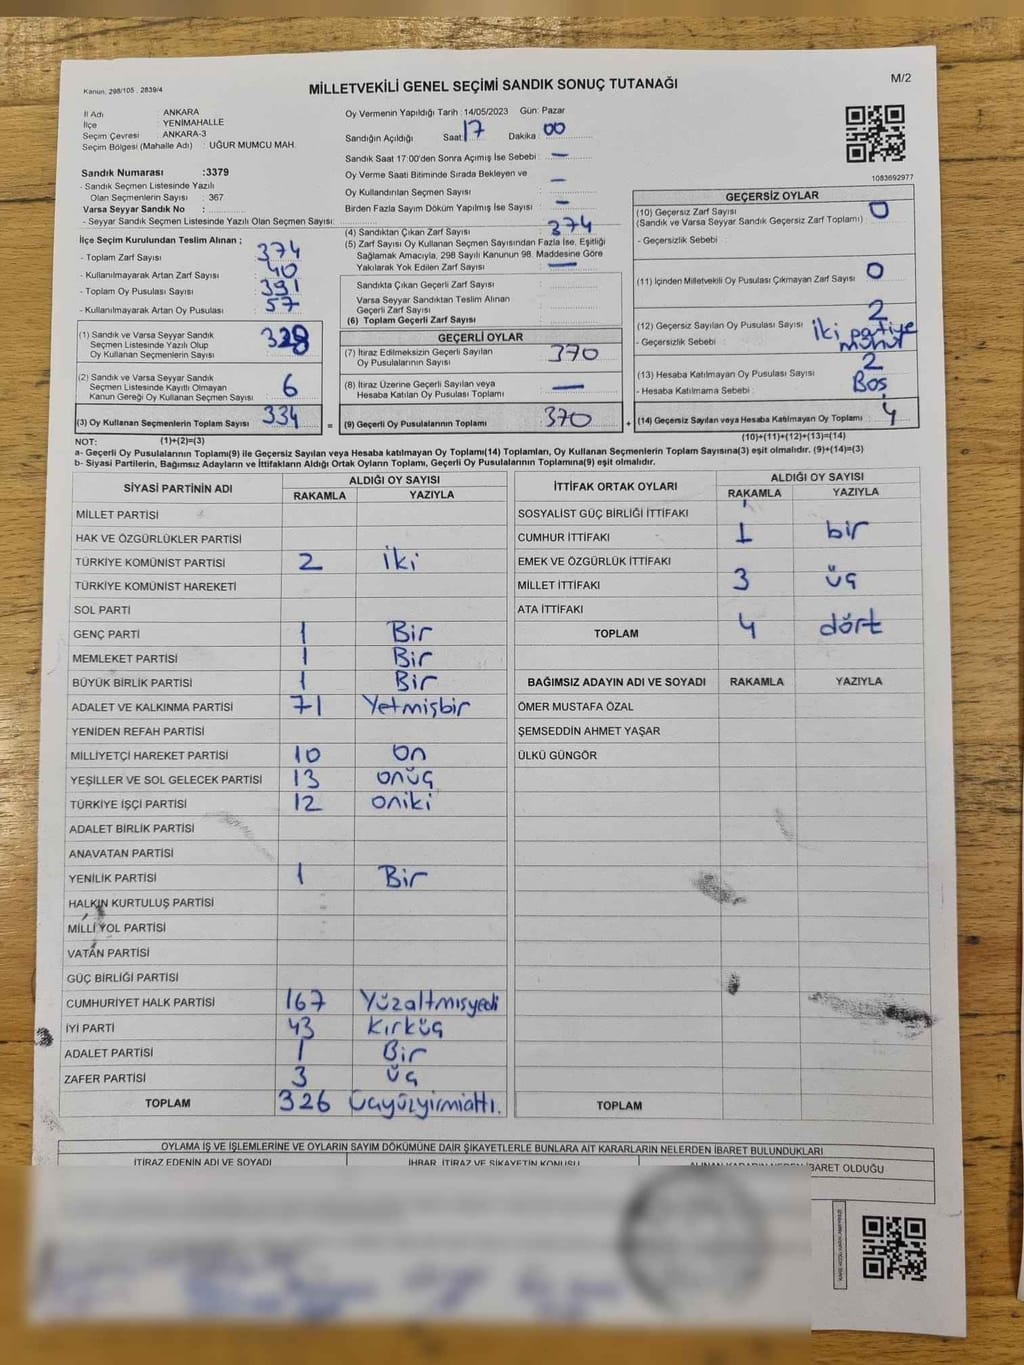 Kanun, 298/105 , 2839/4
MİLLETVEKİLİ GENEL SEÇİMİ SANDIK SONUÇ TUTANAĞI
M/2
İl Adı : ANKARA
İlçe : YENİMAHALLE
Seçim Çevresi : ANKARA-3
Seçim Bölgesi (Mahalle Adı) : UĞUR MUMCU MAH.
Oy Vermenin Yapıldığı Tarih : 14/05/2023 Gün: Pazar
Sandığın Açıldığı Saat: 17 Dakika : 00
Sandık Saat 17:00'den Sonra Açımış İse Sebebi : —
Oy Verme Saati Bitiminde Sırada Bekleyen ve
Oy Kullandırılan Seçmen Sayısı : —
Birden Fazla Sayım Döküm Yapılmış İse Sayısı : —
1083692977
Sandık Numarası :3379
- Sandık Seçmen Listesinde Yazılı
Olan Seçmenlerin Sayısı : 367
Varsa Seyyar Sandık No :
- Seyyar Sandık Seçmen Listesinde Yazılı Olan Seçmen Sayısı:
İlçe Seçim Kurulundan Teslim Alınan ;
- Toplam Zarf Sayısı : 374
- Kullanılmayarak Artan Zarf Sayısı : 40
- Toplam Oy Pusulası Sayısı : 391
- Kullanılmayarak Artan Oy Pusulası : 57
(1) Sandık ve Varsa Seyyar Sandık
Seçmen Listesinde Yazılı Olup
Oy Kullanan Seçmenlerin Sayısı : 328
(2) Sandık ve Varsa Seyyar Sandık
Seçmen Listesinde Kayıtlı Olmayan
Kanun Gereği Oy Kullanan Seçmen Sayısı : 6
(3) Oy Kullanan Seçmenlerin Toplam Sayısı : 334
(4) Sandıktan Çıkan Zarf Sayısı : 374
(5) Zarf Sayısı Oy Kullanan Seçmen Sayısından Fazla İse, Eşitliği
Sağlamak Amacıyla, 298 Sayılı Kanunun 98. Maddesine Göre
Yakılarak Yok Edilen Zarf Sayısı : —
Sandıkta Çıkan Geçerli Zarf Sayısı :
Varsa Seyyar Sandıktan Teslim Alınan
Geçerli Zarf Sayısı :
(6) Toplam Geçerli Zarf Sayısı :
GEÇERLİ OYLAR
(7) İtiraz Edilmeksizin Geçerli Sayılan
Oy Pusulalarının Sayısı : 370
(8) İtiraz Üzerine Geçerli Sayılan veya
Hesaba Katılan Oy Pusulası Toplamı : —
= (9) Geçerli Oy Pusulalarının Toplamı : 370
GEÇERSİZ OYLAR
(10) Geçersiz Zarf Sayısı : 0
(Sandık ve Varsa Seyyar Sandık Geçersiz Zarf Toplamı)
- Geçersizlik Sebebi :
(11) İçinden Milletvekili Oy Pusulası Çıkmayan Zarf Sayısı : 0
(12) Geçersiz Sayılan Oy Pusulası Sayısı : 2
- Geçersizlik Sebebi : İki partiye mühür
(13) Hesaba Katılmayan Oy Pusulası Sayısı : 2
- Hesaba Katılmama Sebebi : Boş
+ (14) Geçersiz Sayılan veya Hesaba Katılmayan Oy Toplamı : 4
NOT: (1)+(2)=(3)
(10)+(11)+(12)+(13)=(14)
a- Geçerli Oy Pusulalarının Toplamı(9) ile Geçersiz Sayılan veya Hesaba katılmayan Oy Toplamı(14) Toplamları, Oy Kullanan Seçmenlerin Toplam Sayısına(3) eşit olmalıdır. (9)+(14)=(3)
b- Siyasi Partilerin, Bağımsız Adayların ve İttifakların Aldığı Ortak Oyların Toplamı, Geçerli Oy Pusulalarının Toplamına(9) eşit olmalıdır.
SİYASİ PARTİNİN ADI ALDIĞI OY SAYISI
RAKAMLA YAZIYLA
MİLLET PARTİSİ
HAK VE ÖZGÜRLÜKLER PARTİSİ
TÜRKİYE KOMÜNİST PARTİSİ 2 iki
TÜRKİYE KOMÜNİST HAREKETİ
SOL PARTİ
GENÇ PARTİ 1 Bir
MEMLEKET PARTİSİ 1 Bir
BÜYÜK BİRLİK PARTİSİ 1 Bir
ADALET VE KALKINMA PARTİSİ 71 Yetmişbir
YENİDEN REFAH PARTİSİ
MİLLİYETÇİ HAREKET PARTİSİ 10 on
YEŞİLLER VE SOL GELECEK PARTİSİ 13 onüç
TÜRKİYE İŞÇİ PARTİSİ 12 oniki
ADALET BİRLİK PARTİSİ
ANAVATAN PARTİSİ
YENİLİK PARTİSİ 1 Bir
HALKIN KURTULUŞ PARTİSİ
MİLLİ YOL PARTİSİ
VATAN PARTİSİ
GÜÇ BİRLİĞİ PARTİSİ
CUMHURİYET HALK PARTİSİ 167 Yüzaltmışyedi
İYİ PARTİ 43 Kırküç
ADALET PARTİSİ 1 Bir
ZAFER PARTİSİ 3 üç
TOPLAM 326 üçyüzyirmialtı.
İTTİFAK ORTAK OYLARI ALDIĞI OY SAYISI
RAKAMLA YAZIYLA
SOSYALİST GÜÇ BİRLİĞİ İTTİFAKI
CUMHUR İTTİFAKI 1 bir
EMEK VE ÖZGÜRLÜK İTTİFAKI
MİLLET İTTİFAKI 3 üç
ATA İTTİFAKI
TOPLAM 4 dört
BAĞIMSIZ ADAYIN ADI VE SOYADI RAKAMLA YAZIYLA
ÖMER MUSTAFA ÖZAL
ŞEMSEDDİN AHMET YAŞAR
ÜLKÜ GÜNGÖR
TOPLAM
OYLAMA İŞ VE İŞLEMLERİNE VE OYLARIN SAYIM DÖKÜMÜNE DAİR ŞİKAYETLERLE BUNLARA AİT KARARLARIN NELERDEN İBARET BULUNDUKLARI
İTİRAZ EDENİN ADI VE SOYADI İHBAR, İTİRAZ VE ŞİKAYETİN KONUSU ALINAN KARARIN NEDEN İBARET OLDUĞU